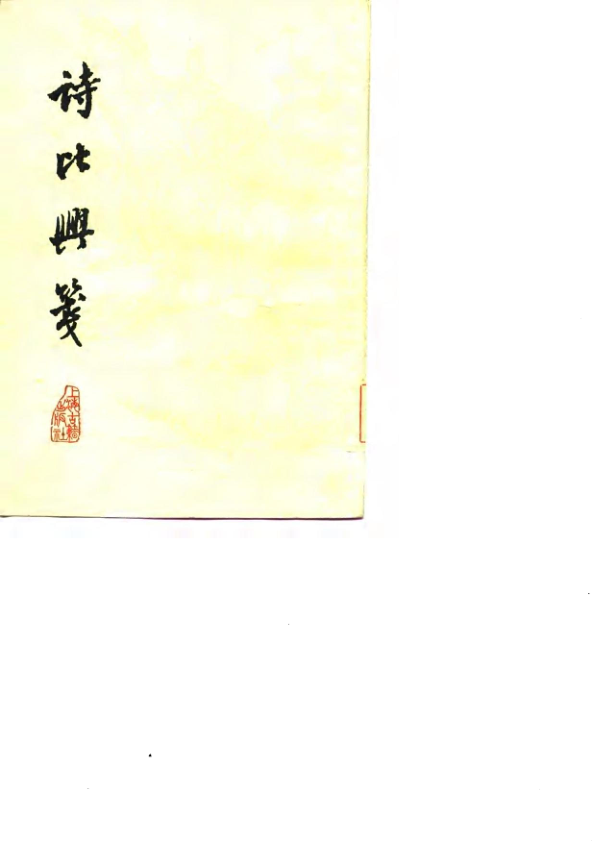 詩比興箋
上海古籍
出版社